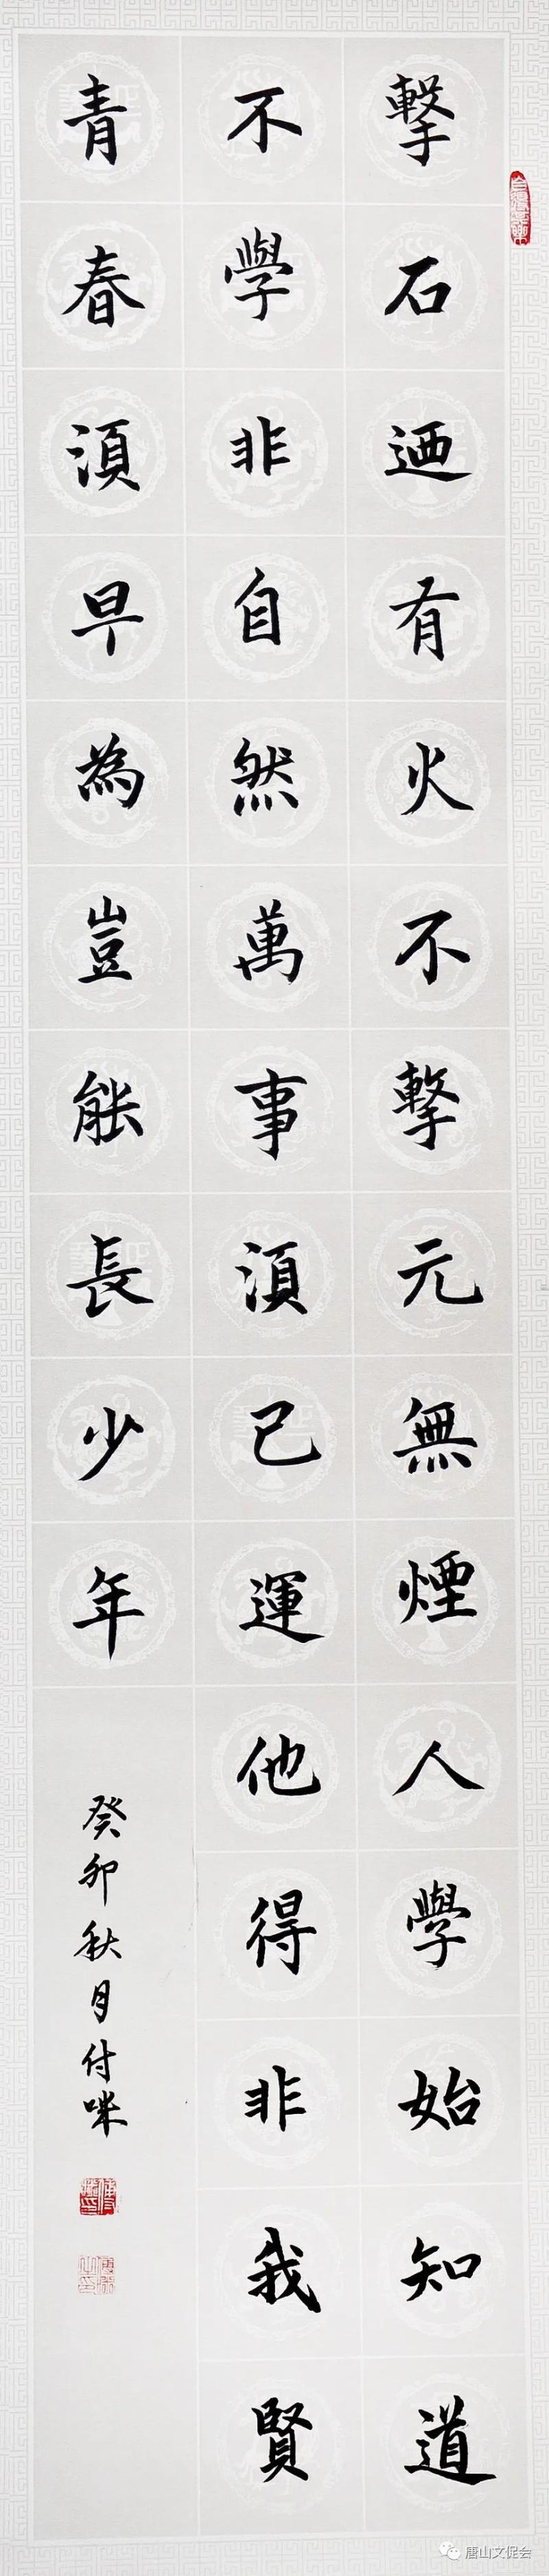 擊石迺有火不擊元無煙人學始知道
不學非自然萬事須己運他得非我賢
青春須早為豈能長少年
癸卯秋月付咪
唐山文促会